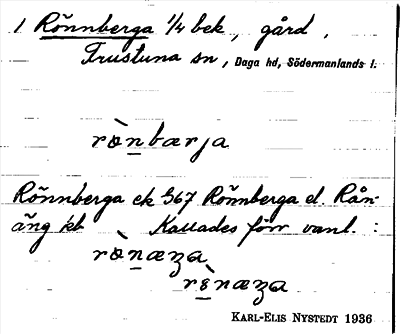 1 Rönnberga 1/4 bek., gård,
Frustuna sn, Daga hd, Södermanlands l.
rònbærja
Rönnberga ek 567 Rönnberga el. Rån-
äng kb Kallades förr vanl. :
rònæza
rènæza
KARL-ELIS NYSTEDT 1936